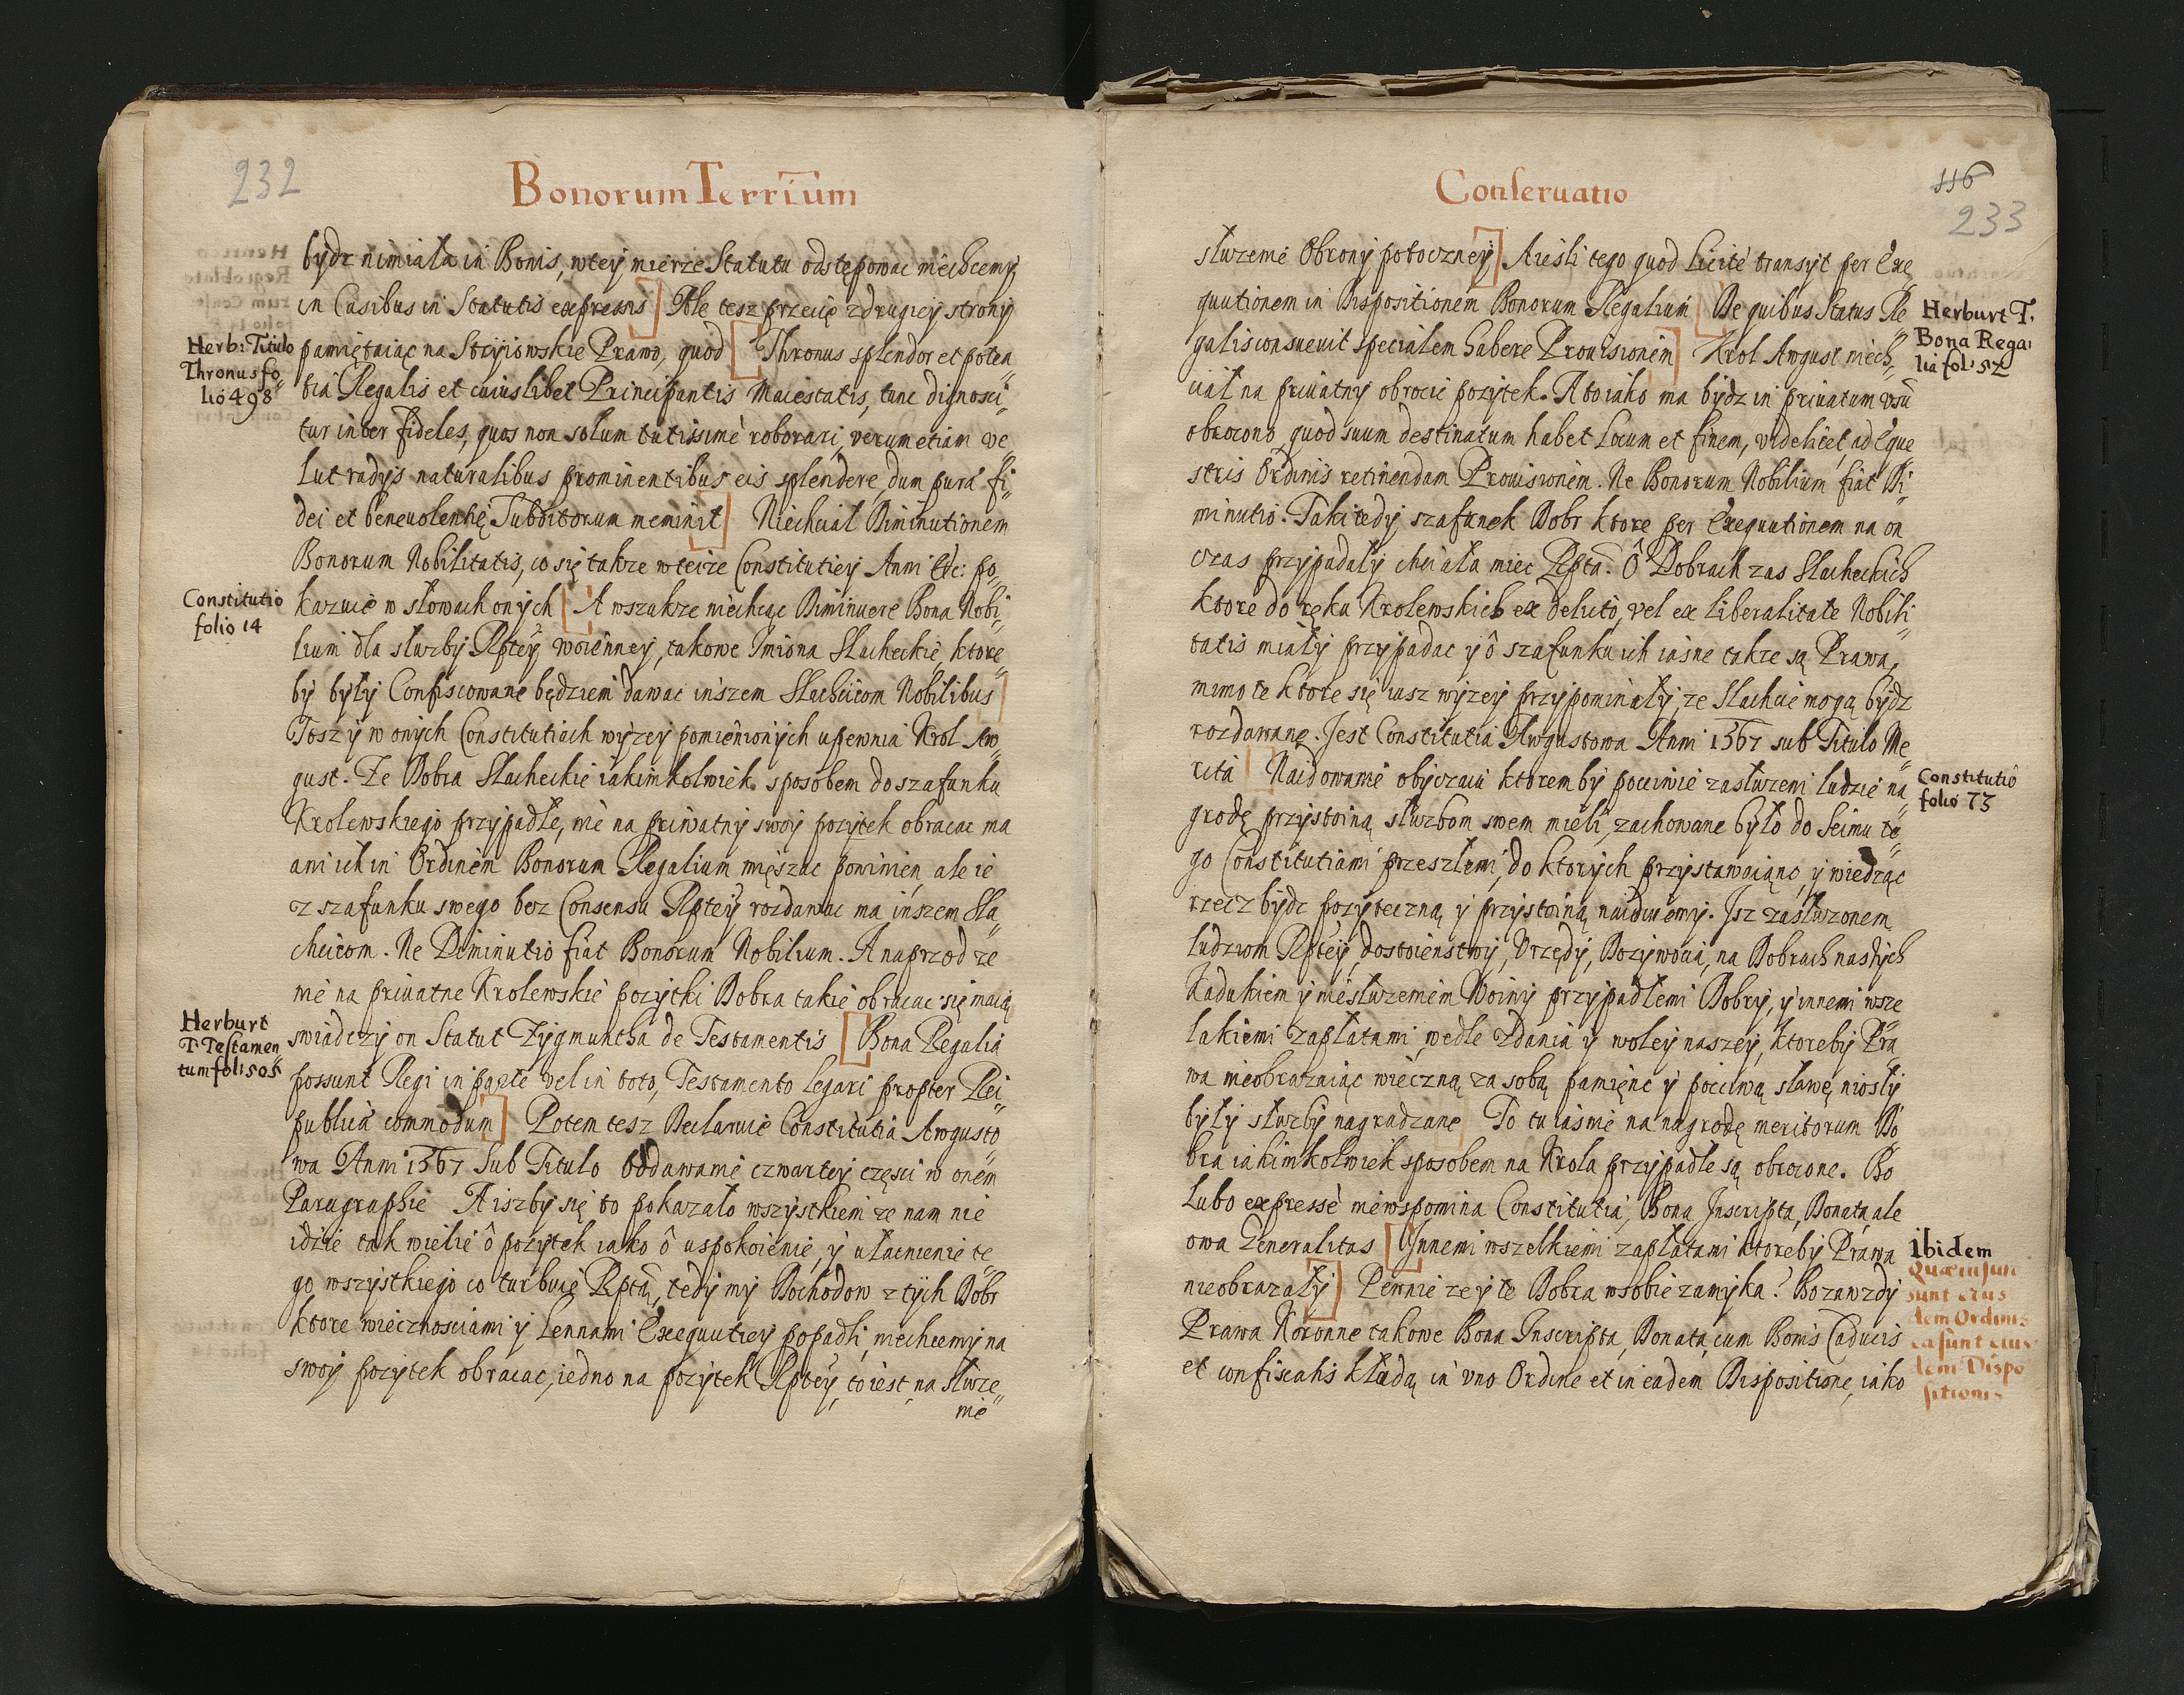 232
Bonorum Terrium
bydz nimiała in Bonis, wtey mierze Statutu odstępowac niechcemy
in Casibus in Statutis expressis] Ale tesz przecię zdrugiey strony
Herb: Titulo
Thronus fo„
lio 498
pamiętaiąc na Stryiowskie Prawo, quod [Thronus splendor et poten„
tia Regalis et cuiuslibet Principantis Maiestatis, tunc dignosci„
tur inter fideles, quos non solum tutissimè roborari, verum etiam ve„
lut radys naturalibus prominentibus eis splendere, dum pura fi„
dei et beneuolentię Subditorum meminit] Niechciał Diminutionem
Bonorum Nobilitatis, co się takze wteize Constitutiey Anni Etc: po„
Constitutio
folio 14
kazuie w słowach onych [A wszakze niechcąc Diminuere Bona Nobi„
lium dla słuzby Rptey woienney, takowe Imiona Slacheckie, ktore„
by były Confiscowane będziem dawac inszem Slachcicom Nobilibus]
Tosz y w onych Constitutiach wyzey pomienionych upewnia Krol Aw„
gust. Ze Dobra Slacheckie iakimkolwiek sposobem do szafunku
Krolewskiego przypadłe, nie na priwatny swoy pozytek obracac ma
ani ich in Ordinem Bonorum Regalium mięszac powinien, ale ie
z szafunku swego bez Consensu Rptey rozdawac ma inszem Sla„
chcicom. Ne Diminutio fiat Bonorum Nobilium. A naprzod ze
nie na priuatne Krolewskie pozytki Dobra takie obracac się maią
Herburt
T. Testamen„
tum fol: 505
swiadczy on Statut Zygmuntha de Testamentis [Bona Regalia
possunt Regi in parte vel in toto, Testamento legari propter Rei„
publica commodum] Potem tesz Declaruie Constitutia Awgusto„
wa Anni 1567 Sub Titulo Oddawanie czwartey częsci w onem
Paragraphie A iszby się to pokazało wszystkiem ze nam nie
idzie tak wielie ô pozytek iako ô uspokoienie, y ułacnienie te„
go wszystkiego co turbuię Rptą, tedy my Dochodow z tych Dobr
ktore wiecznosciami y Lennami Exequutiey popadli, niechcemy na
swoy pozytek obracac, iedno na pozytek Rptey, to iest na słuze„
nie
Conseruatio
116
233
słuzenie Obrony potoczney] A iesli tego quod Licitè transyt per Exe„
quutionem in Dispositionem Bonorum Regalium [De quibus Status Re„
Herburt T.
Bona Rega„
lia fol: 52
galis consueuit specialem habere Prouisionem] Krol Awgust niech„
ciał na priuatny obrocic pozytek. A to iako ma bydz in priuatum vsū
obrocono, quod suum destinatum habet Locum et finem, videlicet, ad Eque„
stris Ordinis retinendam Prouisionem. Ne Bonorum Nobilium fiat Di„
minutio. Taki tedy szafunek Dobr ktore per Exequutionem na on
czas przypadały chciała miec Rpta. Ô Dobrach zas Slacheckich
ktore do ręku Krolewskich ex delicto, vel ex liberalitate Nobili„
tatis miały przypadac y ô szafunku ich iasne takze są Prawa,
mimo te ktore się iusz wyzey przypominały, ze Slachcie mogą bydz
rozdawane. Jest Constitutia Awgustowa Anni 1567 sub Titulo Me„
rita [Naidowanie obyczaiu ktorem by pocciwie zasłuzeni ludzie na„
Constitutio
folio 73
grodę przystoiną słuzbom swem mieli, zachowane było do Seimu te„
go Constitutiami przeszłemi, do ktorych przystawaiąnc, y wiedząc
rzecz bydz pozyteczną y przystoiną naiduiemy. Jsz zasłuzonem
ludziom Rptey, dostoienstwy, Vrzędy, Dozywocia, na Dobrach naszych
Kadukiem y niesłuzeniem Woiny przypadłemi Dobry, y innemi wsze„
lakiemi zapłatami, wedle Zdania y woley naszey, ktoreby Pra„
wa nieobrazaiąc wieczną za sobą pamięnc y pocciwą sławę niosły
były słuzby nagradzane] To tu iasnie na nagrodę meritorum Do„
bra iakimkolwiek sposobem na Krola przypadłe są obrocone. Bo
Lubo expressè niewspomina Constitutia, Bona Inscripta, Donata, ale
owa Generalitas [Innemi wszelkiemi zapłatami ktoreby Prawa
Ibidem
nieobrazały] Pewnie ze y te Dobra wsobie zamyka? Bo zawzdy
Quæ insunt
sunt eius„
dem Ordinis
ea sunt eius„
dem Dispo„
sitionis
Prawa Koronne takowe Bona Inscripta, Donata, cum Bonis Caducis
et confiscatis kładą in vno Ordine et in eadem Dispositione, iako